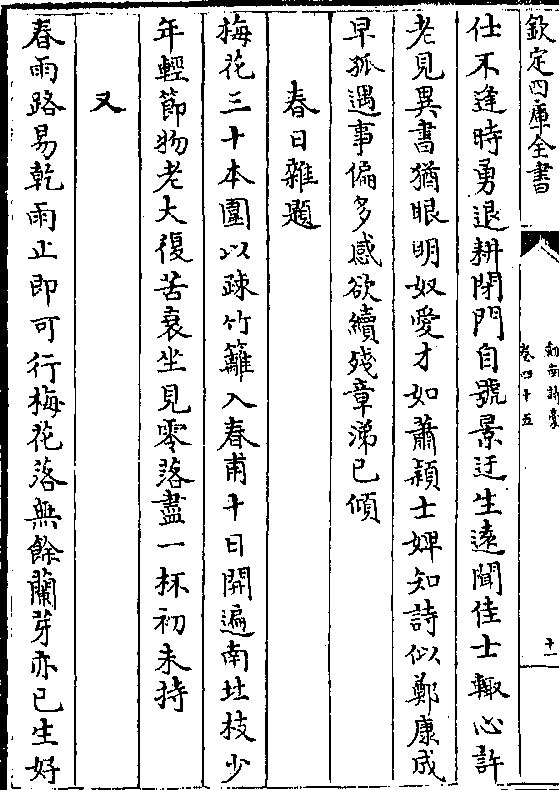 欽定四庫全書
劍南詩稾
卷四十五
十一
仕不逢時勇退耕閉門自號景迂生遠聞佳士輒心許
老見異書猶眼明奴愛才如蕭穎士婢知詩似鄭康成
早孤遇事偏多感欲續殘章涕已傾
春日雜題
梅花三十本圍以疎竹籬入春甫十日開遍南北枝少
年輕節物老大復苦衰坐見零落盡一杯初未持
又
春雨路易乾雨止即可行梅花落無餘蘭芽亦已生好